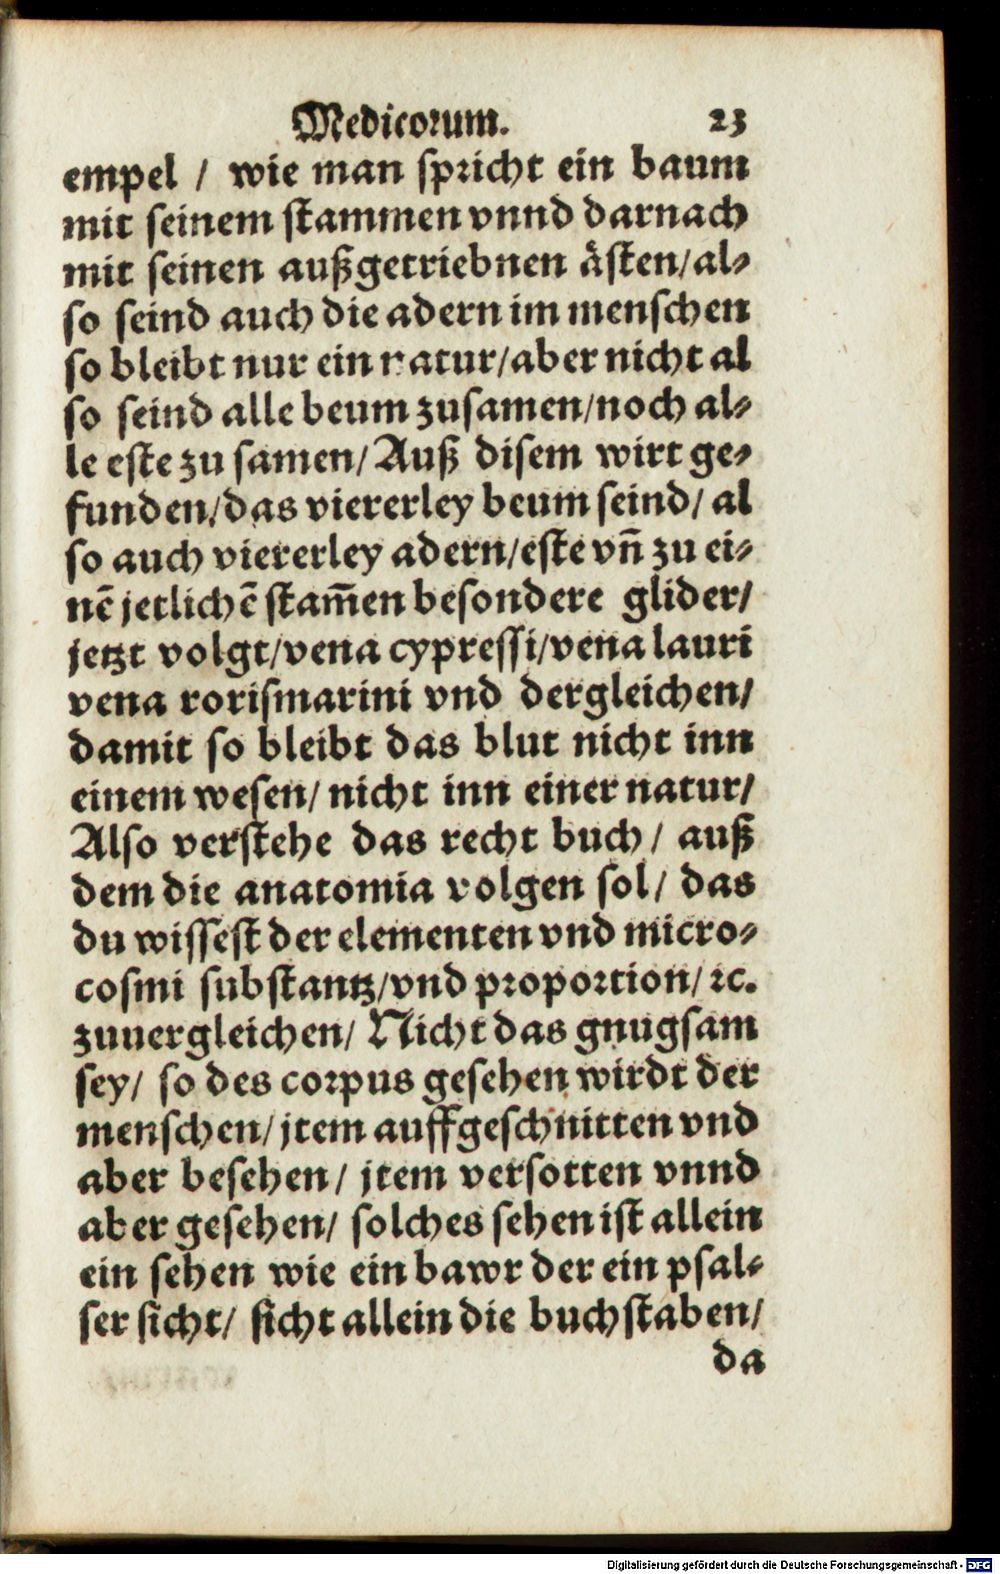 Medicorum. 23
empel / wie man spricht ein baum
mit seinem stammen vnnd darnach
mit seinen außgetriebnen ästen/al⸗
so seind auch die adern im menschen
so bleibt nur ein natur/aber nicht al
so seind alle beum zusamen/noch al⸗
le este zu samen/Auß disem wirt ge⸗
funden/das viererley beum seind/ al
so auch viererley adern/este vn̄ zu ei⸗
nē jetlichē stam̄en besondere glider/
jetzt volgt/vena cypressi/vena lauri
vena rorismarini vnd dergleichen/
damit so bleibt das blut nicht inn
einem wesen/ nicht inn einer natur/
Also verstehe das recht buch / auß
dem die anatomia volgen sol/ das
du wissest der elementen vnd micro⸗
cosmi substantz/vnd proportion/ ꝛc.
zuuergleichen/ Nicht das gnugsam
sey/ so des corpus gesehen wirdt der
menschen/jtem auffgeschnitten vnd
aber besehen/ jtem versotten vnnd
aber gesehen/ solches sehen ist allein
ein sehen wie ein bawr der ein psal⸗
ser sicht/ sicht allein die buchstaben/
da
Digitalisierung gefördert durch die Deutsche Forschungsgemeinschaft - DFG